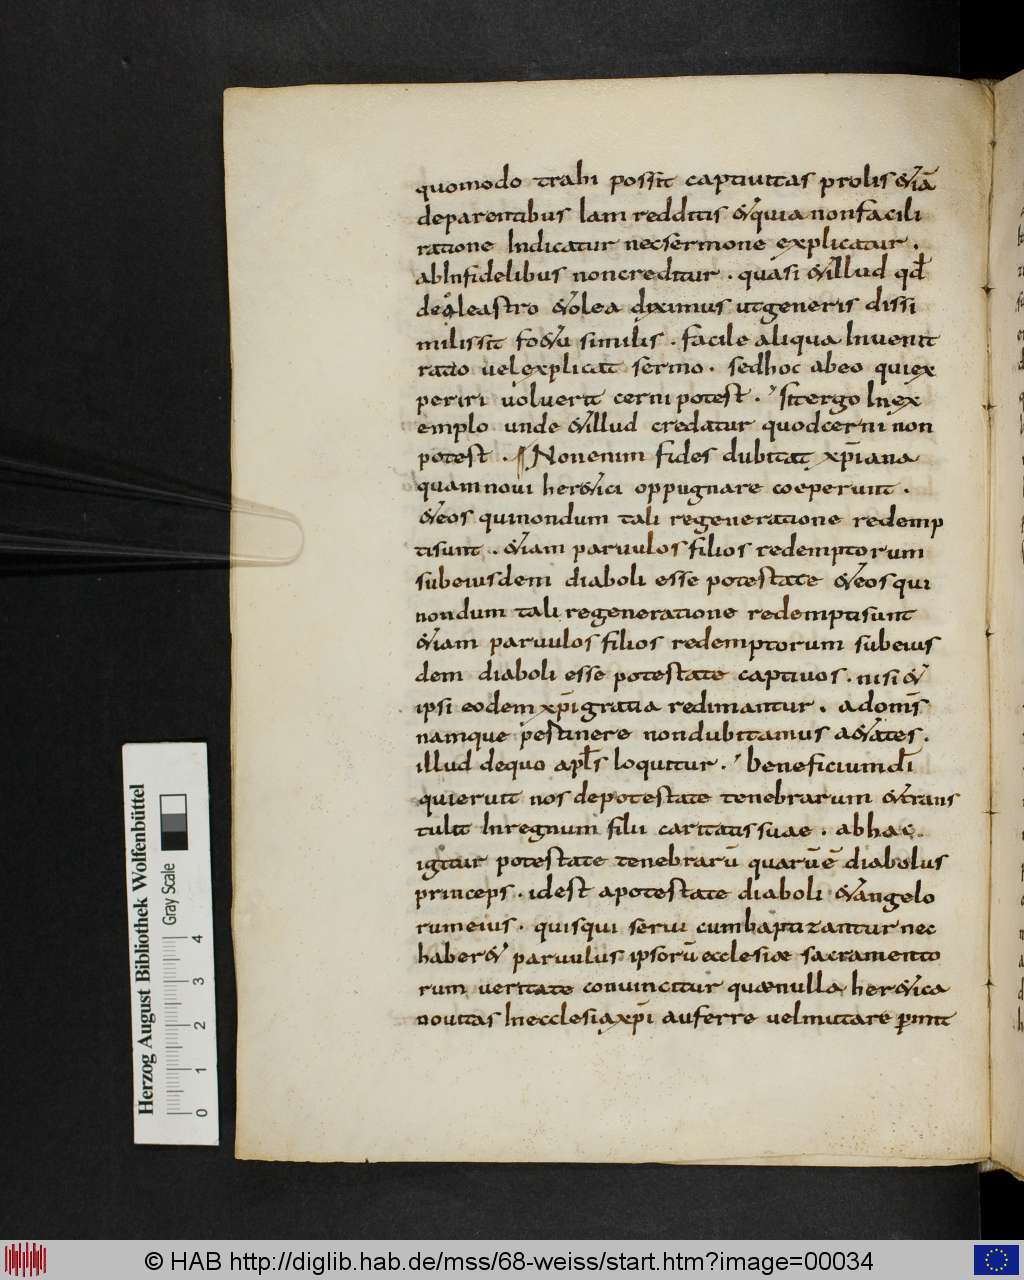 quomodo trahi possit captiuitas prolis &iā
deparentibus Iam redditis &quia nonfacili
ratione Indicatur necsermone explicatur.
abInfidelibus noncreditur. quasi &illud qđ
deoleastro &olea diximus utgeneris dissi
milissit fo&u similis. facile aliqua Inuenit
ratio uelexplicat sermo. sedhoc abeo quiex
periri uoluerit cerni potest. Sitergo Inex
emplo unde &illud credatur quodcerni non
potest. Nonenim fides dubitat xp̄iana
quamnoui her&ici oppugnare coeperunt.
&eos quinondum tali regeneratione redemp
tisunt. &iam paruulos filios redemptorum
subeiusdem diaboli esse potestate &eosqui
nondum tali regeneratione redemptisunt
&iam paruulos filios redemptorum subeius
dem diaboli esse potestate captiuos. nisi &
ipsi eodem xp̄i gratia redimantur. adom̄s
namque pertinere nondubitamus a&ates.
illud dequo apl̄s loquitur. beneficiumdī
quieruit nos depotestate tenebrarum &trans
tulit Inregnum filii caritatis suae. abhac
igitur potestate tenebrarū quarūē diabolus
princeps. idest apotestate diaboli &angelo
rumeius. quisqui serui cumbaptizanturnec
haber& paruulus ipsorū ecclesiae sacramento
rum ueritate conuincitur quaenulla her&ica
nouitas Inecclesiaxp̄i auferre uelmutare p̄mit
Herzog August Bibliothek Wolfenbüttel
Gray Scale
0 1 2 3 4
© HAB http://diglib.hab.de/mss/68-weiss/start.htm?image=00034